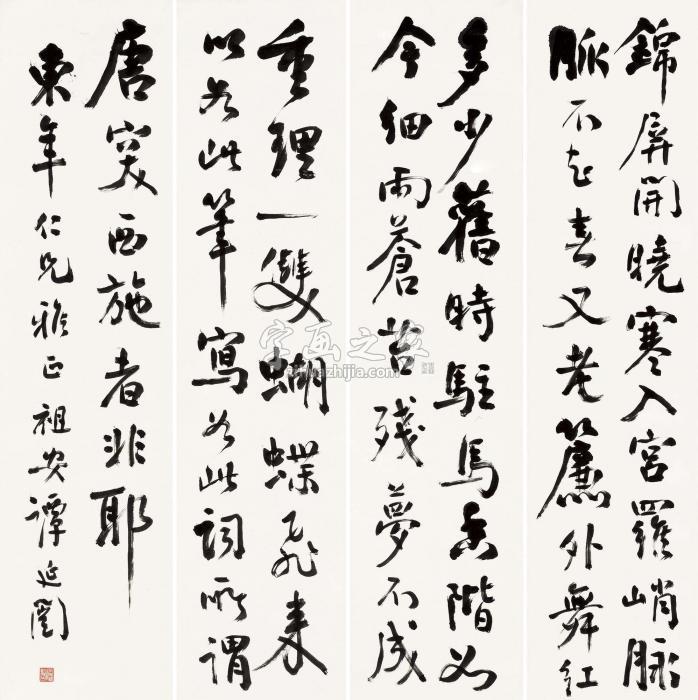 錦屏開曉寒入宮羅峭脉
脈不知春又老簾外舞紅
多少舊時駐馬香階如
今細雨蒼苔殘夢不成
重理一雙蝴蝶飛來
以如此筆寫如此詞所謂
唐突西施者非耶
東年仁兄雅正祖安譚延闓
字画之家